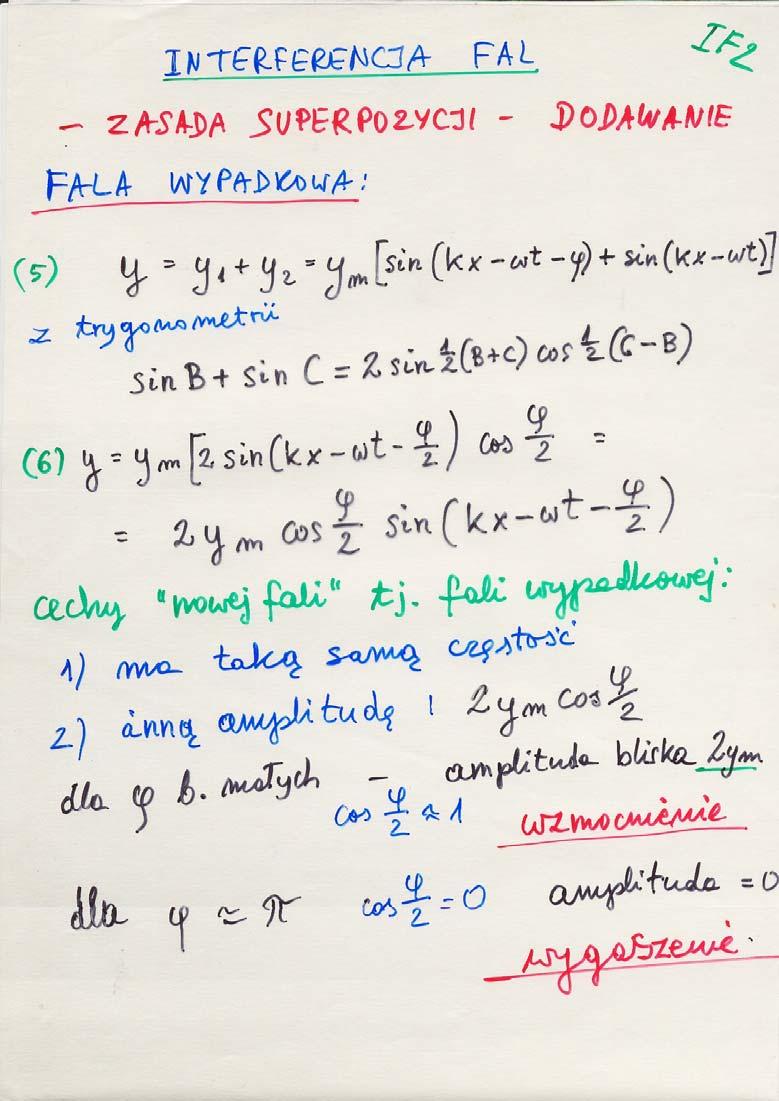 IF2
INTERFERENCJA FAL
- ZASADA SUPERPOZYCJI - DODAWANIE
FALA WYPADKOWA:
(5) y = y₁ + y₂ = yₘ [sin (kx - ωt - φ) + sin (kx - ωt)]
z trygonometrii
sin B + sin C = 2 sin ½ (B+C) cos ½ (C - B)
(6) y = yₘ [2 sin (kx - ωt - φ/2) cos φ/2 =
= 2 yₘ cos φ/2 sin (kx - ωt - φ/2)
cechy "nowej fali" tj. fali wypadkowej:
1) ma taką samą częstość
2) inną amplitudę ! 2 yₘ cos φ/2
dla φ b. małych - amplituda bliska 2yₘ
cos φ/2 ≈ 1 wzmocnienie
dla φ ≃ π cos φ/2 = 0 amplituda = 0
wygaszenie.